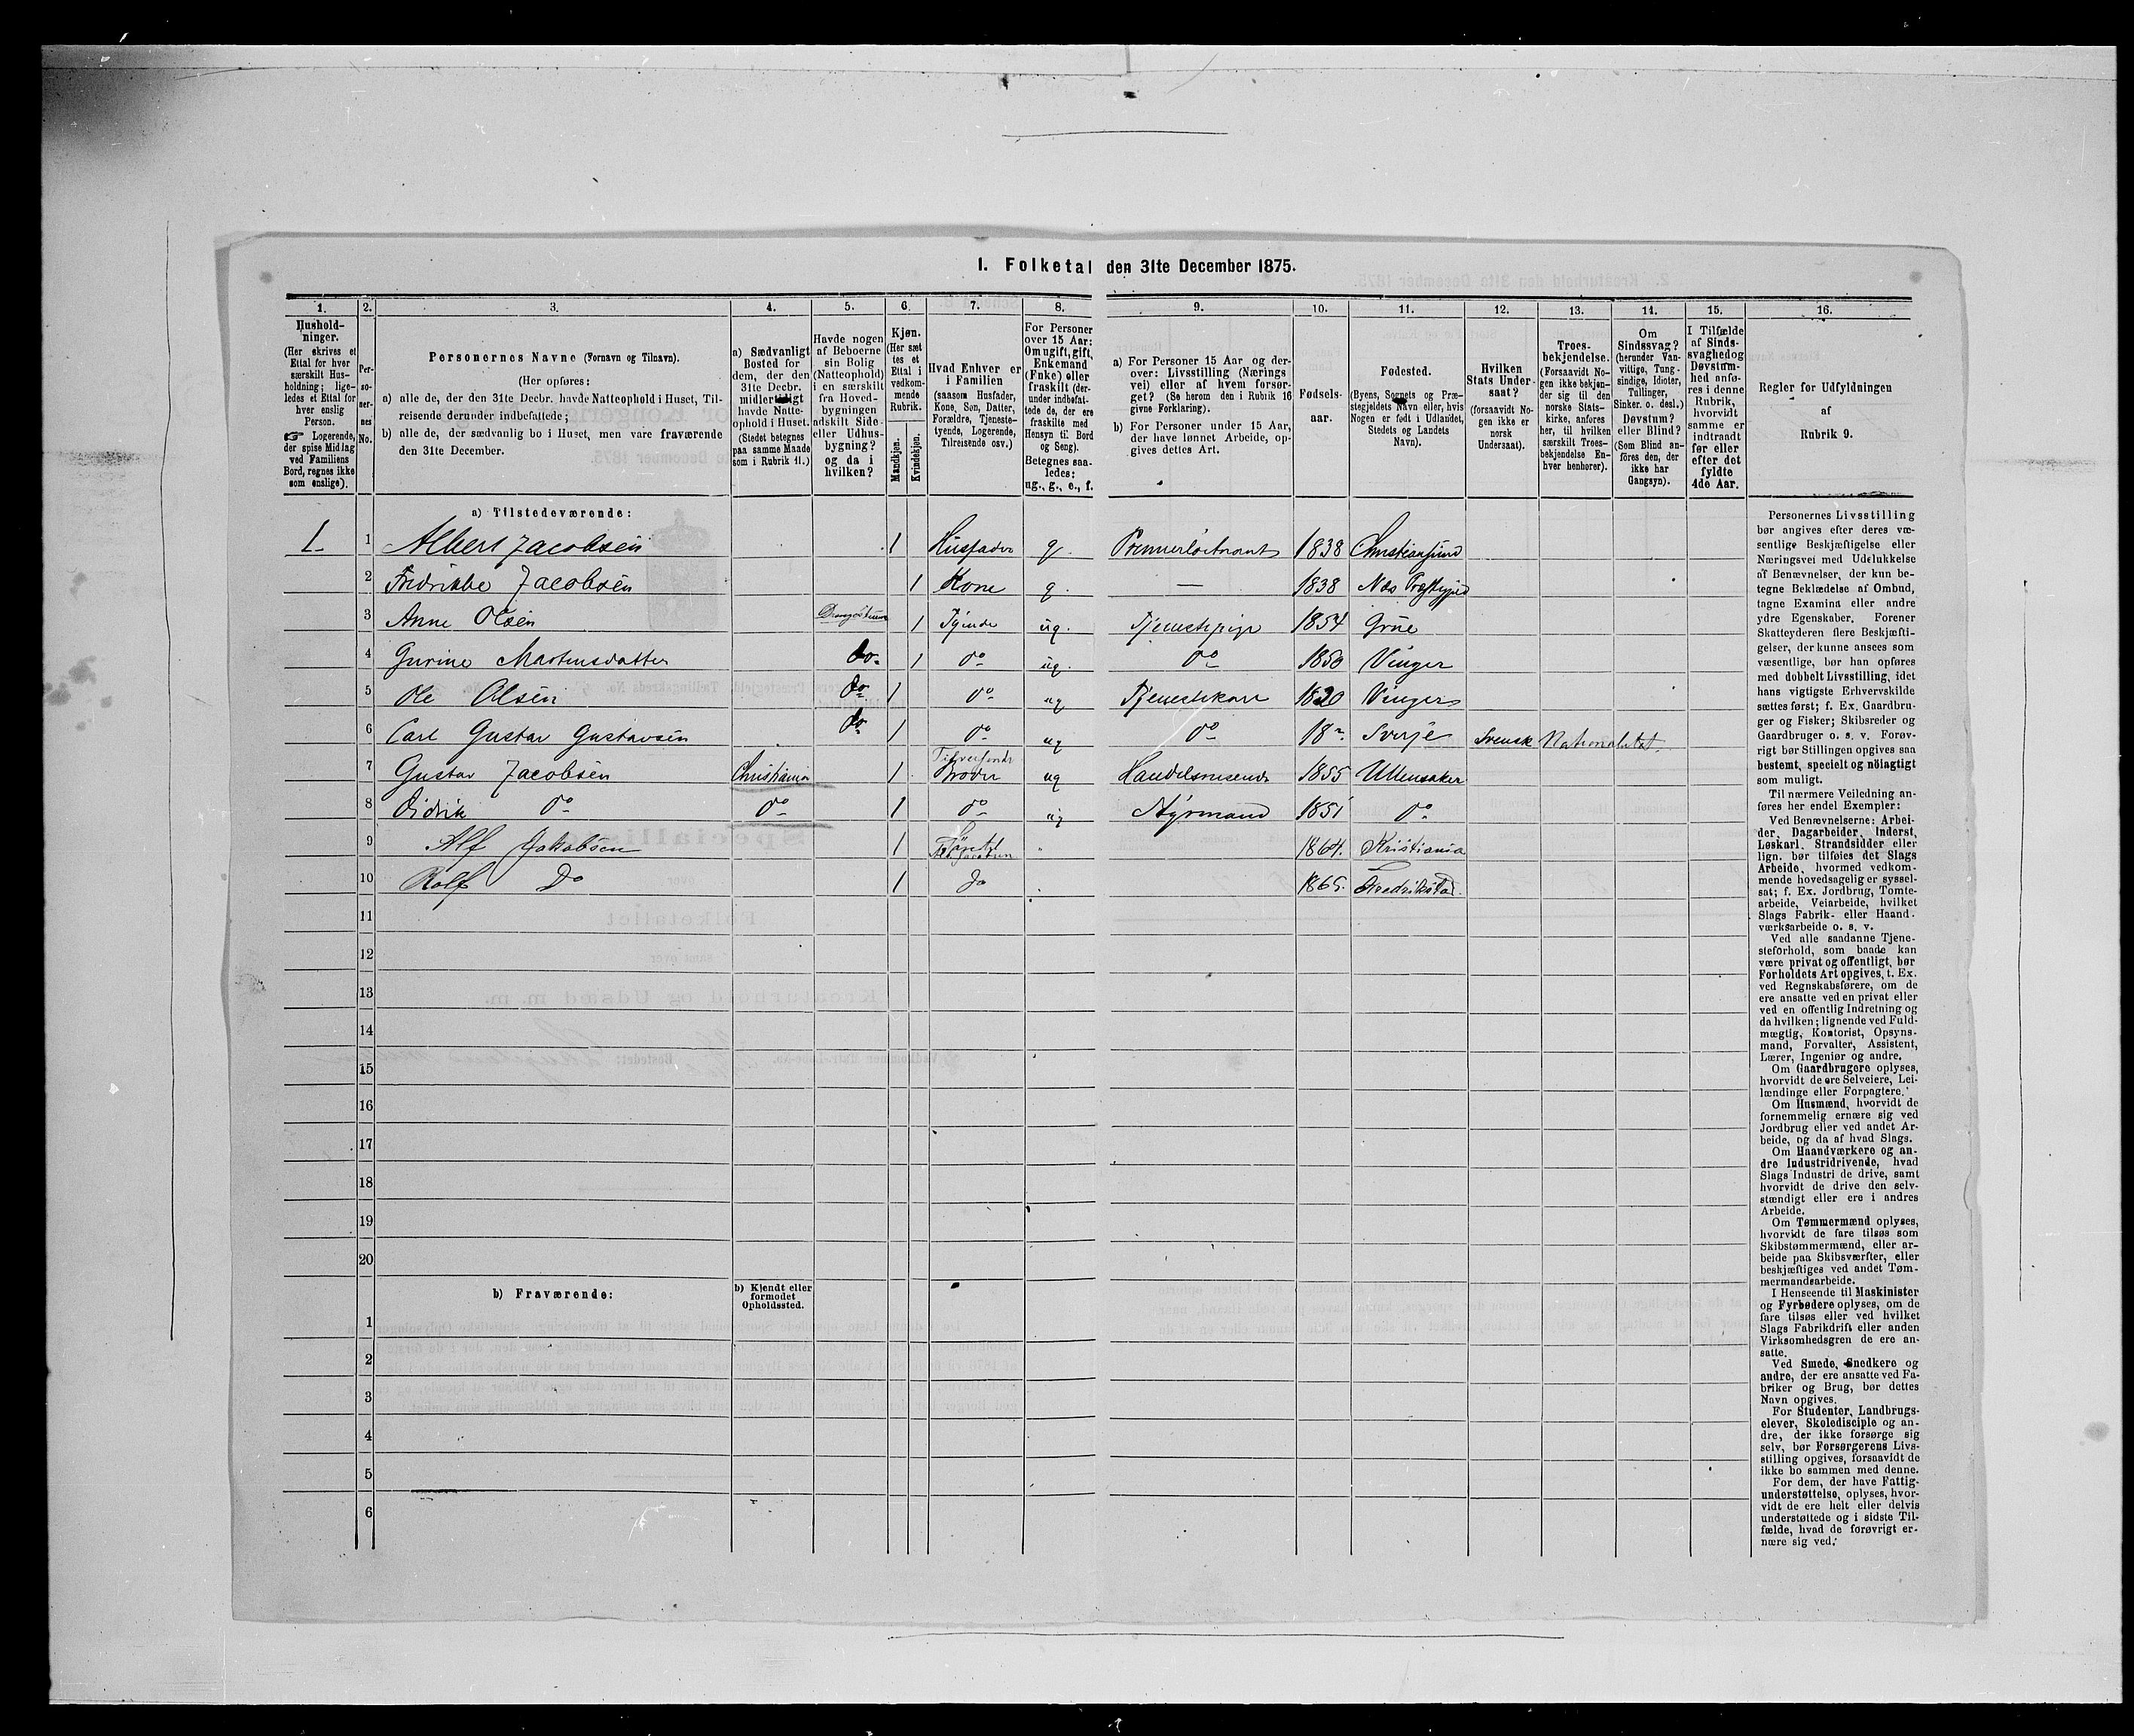 I. Folketal den 31te December 1875.
1. 2. 3. 4. 5. 6. 7. 8. 9. 10. 11. 12. 13. 14. 15. 16.
Hushold-
ninger.
(Her skrives et
Ettal for hver
særskilt Hus-
holdning; lige-
ledes et Ettal for
hver enslig
Person.
☞ Logerende,
der spise Middag
ved Familiens
Bord, regnes ikke
som enslige).
Per-
so-
ner-
nes
No.
Personernes Navne (Fornavn og Tilnavn).
(Her opføres:
a) alle de, der den 31te Decbr. havde Natteophold i Huset, Til-
reisende derunder indbefattede;
b) alle de, der sædvanlig bo i Huset, men vare fraværende
den 31te December.
a) Sædvanligt
Bosted for
dem, der den
31te Decbr.
midlertidigt
havde Natte-
ophold i Huset.
(Stedet betegnes
paa samme Maade
som i Rubrik 11.)
Havde nogen
af Beboerne
sin Bolig
(Natteophold)
i en særskilt
fra Hoved-
bygningen
adskilt Side-
eller Udhus-
bygning?
og da i
hvilken?
Kjøn.
(Her sæt
tes et
Ettal i
vedkom-
mende
Rubrik.
Mandkjøn.
Kvindekjøn.
Hvad Enhver er
i Familien
(saasom Husfader,
Kone, Søn, Datter,
Forældre, Tjeneste-
tyende, Logerende,
Tilreisende osv.)
For Personer
over 15 Aar:
Om ugift, gift,
Enkemand
(Enke) eller
fraskilt (der-
under indbefat-
tede de, der ere
fraskilte med
Hensyn til Bord
og Seng).
Betegnes saa-
ledes:
ug., g., e., f.
a) For Personer 15 Aar og der-
over: Livsstilling (Nærings
vei) eller af hvem forsør-
get? (Se herom den i Rubrik 16
givne Forklaring).
b) For Personer under 15 Aar,
der have lønnet Arbeide, op-
gives dettes Art.
Fødsels-
aar.
Fødested.
(Byens, Sognets og Præ-
stegjeldets Navn eller, hvis
Nogen er født i Udlandet,
Stedets og Landets
Navn).
Hvilken
Stats Under-
saat?
(forsaavidt No-
gen ikke er
norsk
Undersaat).
Troes-
bekjendelse.
(Forsaavidt No-
gen ikke bekjen-
der sig til den
norske Stats-
kirke, anføres
her, til hvilken
særskilt Troes-
bekjendelse En-
hver henhører).
Om
Sindssvag?
(herunder Van-
vittige, Tung-
sindige, Idioter,
Tullinger,
Sinker. o. desl.)
Døvstum?
eller Blind?
(Som Blind an-
føres den, der
ikke har
Gangsyn).
I Tilfælde
af Sinds-
svaghed og
Døvstum-
hed anfø-
res i denne
Rubrik,
hvorvidt
samme er
indtraadt
før eller
efter det
fyldte
4de Aar.
Regler for Udfyldningen
af
Rubrik 9.
a) Tilstedeværende:
1 1 Albert Jacobsen 1 Husfader g. Premierløitnant 1838 Christiansund
2 Fredrikke Jacobsen 1 Kone g. — 1838 Næs Præstegjed
3 Anne Olsen 1 Tyende ug. Tjenestepige 1854 Grue
4 Gurine Martinsdatter do. 1 do ug. do 1850 Vinger
5 Ole Olsen do 1 do ug Tjenestekarl 1820 Vinger
6 Carl Gustav Gustavsen do 1 do ug do 18 Sverje Svensk Nationalitet.
7 Gustav Jacobsen Christiania 1 Tilreisende Broder ug Handelsreisende 1855 Ullensaker
8 Didrik do do 1 do ug Styrmand 1851 do
9 Alf Jakobsen 1 1864. Kristiania
10 Rolf Do 1 Do 1865. Fredrikstad.
11
12
13
14
15
16
17
18
19
20
b) Fraværende:
b) Kjendt eller
formodet
Opholdssted.
1
2
3
4
5
6
Personernes Livsstilling
bør angives efter deres væ-
sentlige Beskjæftigelse eller
Næringsvei med Udelukkelse
af Benævnelser, der kun be-
tegne Beklædelse af Ombud,
tagne Examina eller andre
ydre Egenskaber. Forener
Skatteyderen flere Beskjæfti-
gelser, der kunne ansees som
væsentlige, bør han opføres
med dobbelt Livsstilling, idet
hans vigtigste Erhvervskilde
sættes først; f. Ex. Gaardbru-
ger og Fisker; Skibsreder og
Gaardbruger o. s. v. Forøv-
rigt bør Stillingen opgives saa
bestemt, specielt og nöiagtigt
som muligt.
Til nærmere Veiledning an-
føres her endel Exempler:
Ved Benævnelserne: Arbei-
der, Dagarbeider, Inderst,
Løskarl, Strandsidder eller
lign. bør tilføies det Slags
Arbeide, hvormed vedkom-
mende hovedsagelig er syssel-
sat; f. Ex. Jordbrug, Tomte-
arbeide, Veiarbeide, hvilket
Slags Fabrik- eller Haand-
værksarbeide o. s. v.
Ved alle saadanne Tjene-
steforhold, som baade kan
være privat og offentligt, bør
Forholdets Art opgives, t. Ex.
ved Regnskabsførere, om de
ere ansatte ved en privat eller
ved en offentlig Indretning og
da hvilken; lignende ved Fuld-
mægtig, Kontorist, Opsyns-
mand, Forvalter, Assistent,
Lærer, Ingeniør og andre.
Om Gaardbrugere oplyses,
hvorvidt de ere Selveiere, Lei-
lændinge eller Forpagtere.
Om Husmænd, hvorvidt de
fornemmelig ernære sig ved
Jordbrug eller ved andet Ar-
beide, og da af hvad Slags.
Om Haandværkere og an-
dre Industridrivende, hvad
Slags Industri de drive, samt
hvorvidt de drive den selv-
stændigt eller ere i andres
Arbeide.
Om Tømmermænd oplyses,
hvorvidt de fare tilsøs som
Skibstømmermænd, eller ar-
beide paa Skibsværfter, eller
beskjæftiges ved andet Tøm-
mermandsarbeide.
I Henseende til Maskinister
og Fyrbødere oplyses, om de
fare tilsøs eller ved hvilket
Slags Fabrikdrift eller anden
Virksomhedsgren de ere an-
satte.
Ved Smede, Snedkere og
andre, der ere ansatte ved Fa-
briker og Brug, bør dettes
Navn opgives.
For Studenter, Landbrugs-
elever, Skoledisciple og an-
dre, der ikke forsørge sig
selv, bør Forsørgerens Livs-
stilling opgives, forsaavidt de
ikke bo sammen med denne.
For dem, der have Fattig-
understøttelse, oplyses, hvor-
vidt de ere helt eller delvis
understøttede og i sidste Til-
fælde, hvad de forøvrigt er-
nære sig ved.